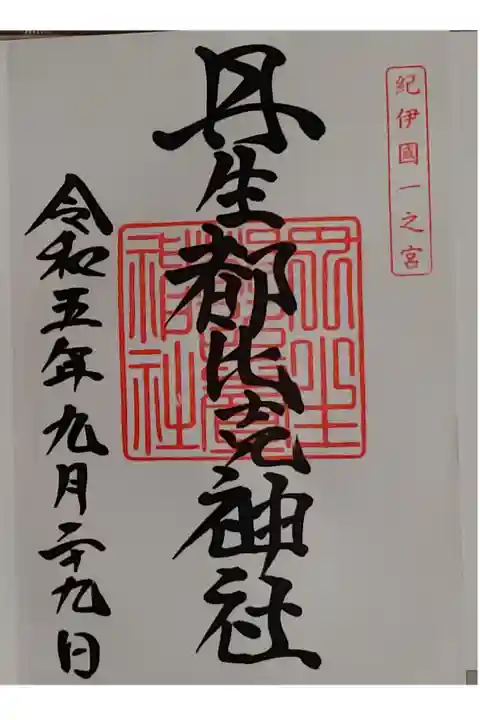 紀伊國一之宮
丹生都比売神社
丹生
神社
令和五年九月二十九日